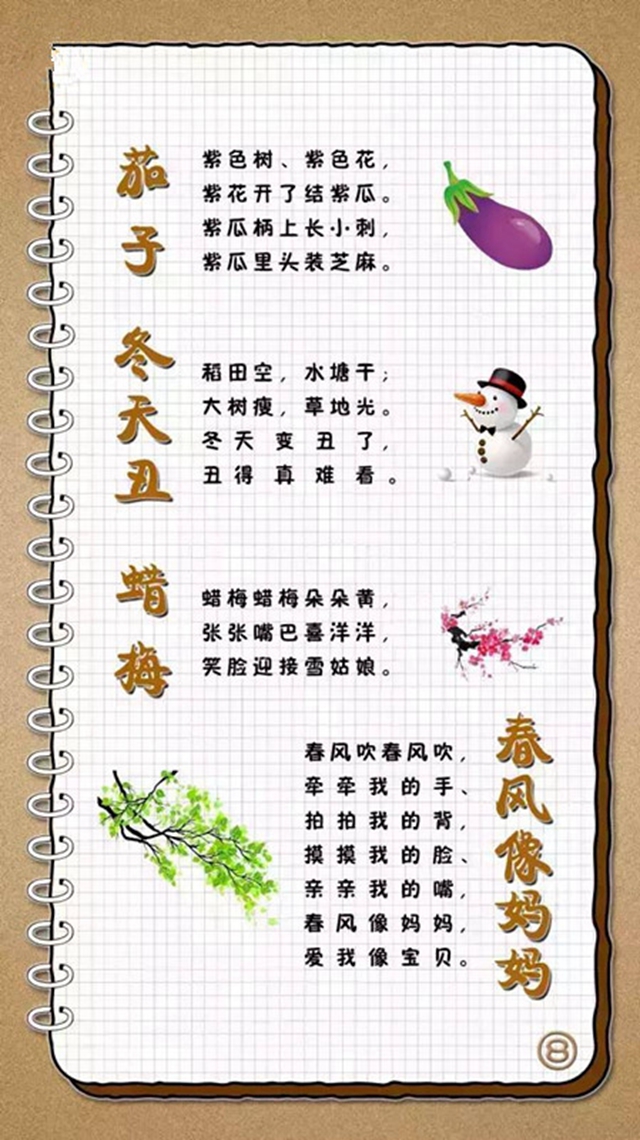 茄子
紫色树、紫色花，
紫花开了结紫瓜。
紫瓜柄上长小刺，
紫瓜里头装芝麻。
冬天丑
稻田空，水塘干；
大树瘦，草地光。
冬天变丑了，
丑得真难看。
蜡梅
蜡梅蜡梅朵朵黄，
张张嘴巴喜洋洋，
笑脸迎接雪姑娘。
春风像妈妈
春风吹春风吹，
牵牵我的手、
拍拍我的背，
摸摸我的脸、
亲亲我的嘴，
春风像妈妈，
爱我像宝贝。
⑧